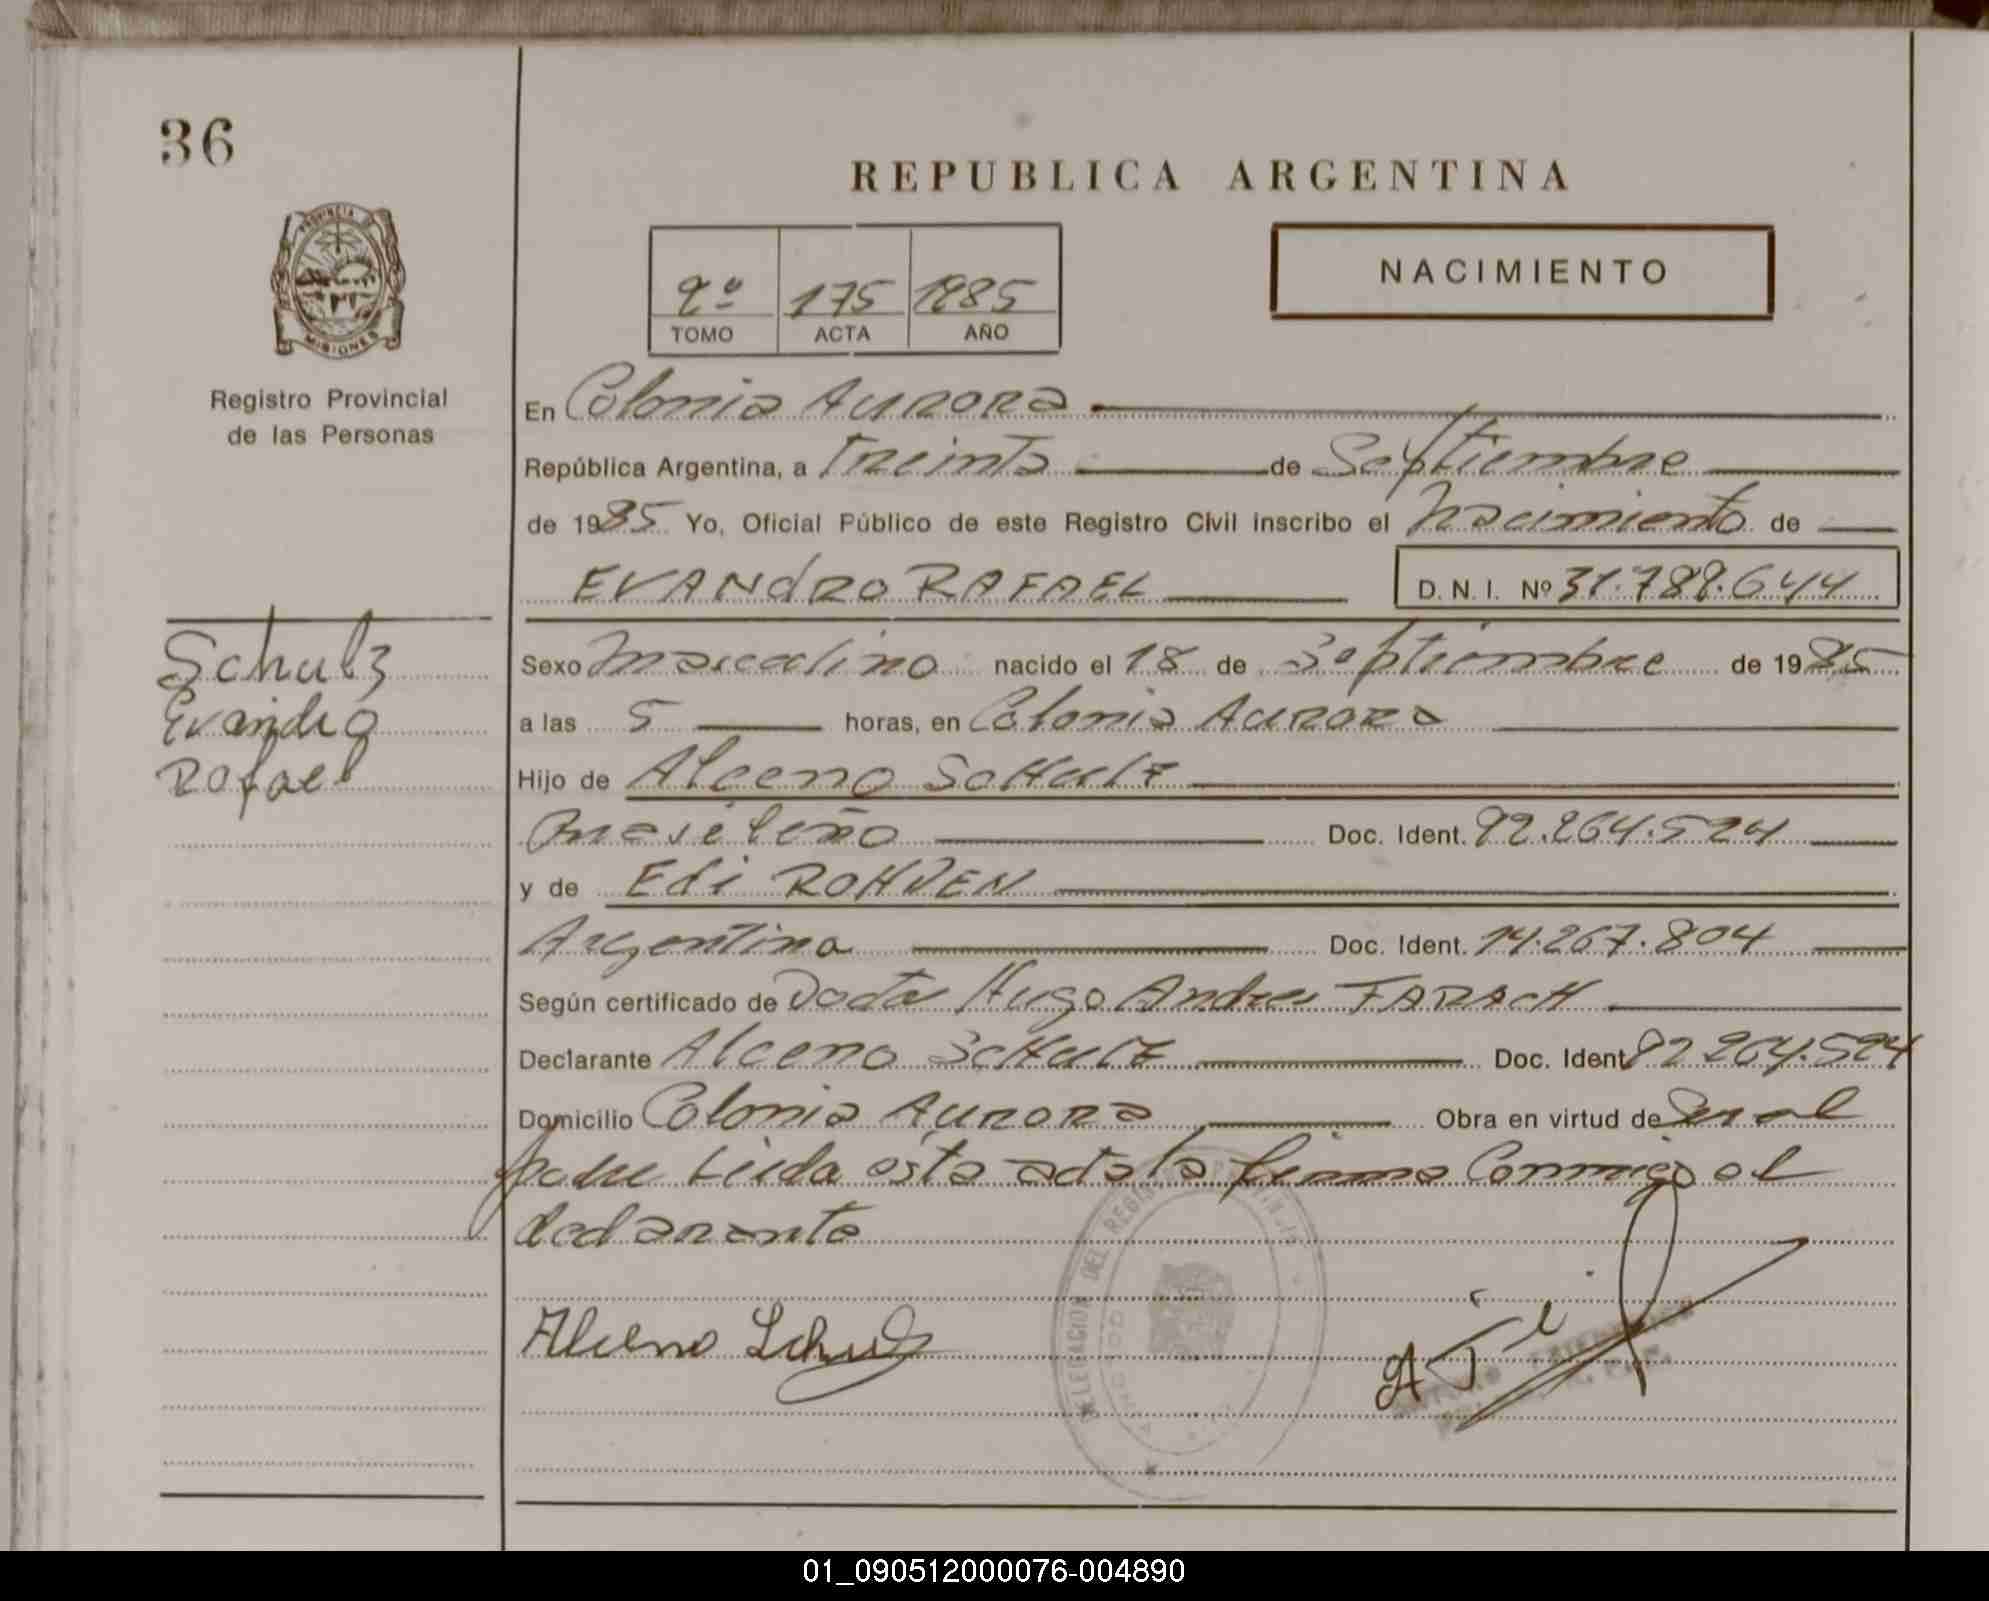 36
REPUBLICA ARGENTINA
PROVINCIA DE
MISIONES
Registro Provincial
de las Personas
2º 175 1985
TOMO ACTA AÑO
NACIMIENTO
En Colonia Aurora
República Argentina, a Treinta de Septiembre
de 1985 Yo, Oficial Público de este Registro Civil inscribo el Nacimiento de
EVANDRO RAFAEL D. N. I. Nº 31.788.644
Schulz
Evandro
Rafael
Sexo Masculino nacido el 18 de Septiembre de 1985
a las 5 horas, en Colonia Aurora
Hijo de Alceno SCHulz
Brasileño Doc. Ident. 92.264.524
y de Edi ROHDEN
Argentina Doc. Ident. 14.267.804
Según certificado de Doctor Hugo Andres FARACH
Declarante Alceno SCHulz Doc. Ident 92.264.524
Domicilio Colonia Aurora Obra en virtud de Ser el
padre Leida esta acta la firma Conmigo el
declarante
Alceno Schulz
DELEGACION DEL REGISTRO
01_090512000076-004890